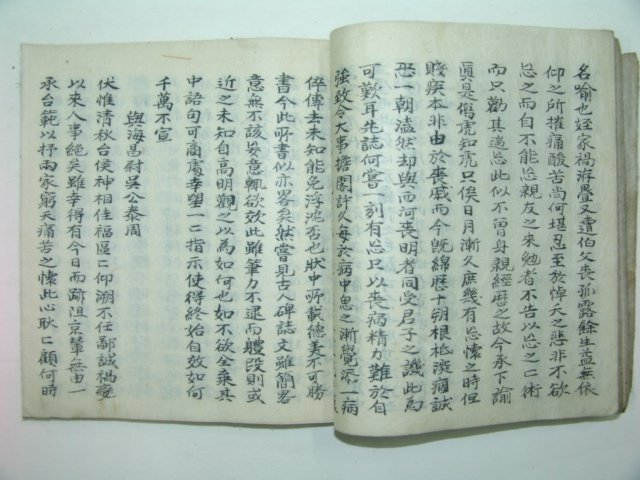 名喻也姪家禍洊疊又遭伯父喪孤露餘生益無依
仰之所摧痛酸苦尚何堪忍至於悼夭之悲非不欲
忘之而自不能忘親友之來勉者不告以忘之之術
而只勸其過忘此似不曾身親經歷之故今承下諭
眞是傷虎知虎只俟日月漸久庶幾有忘懷之時但
賤疾本非由於喪慽而今旣綿歷十朔根柢深痼誠
恐一朝溘然却與西河喪明者同受君子之譏此爲
可歎耳先誌何嘗一刻有忘只以喪病精力難於自
強致令大事擔閣許久每於病中思之漸覺添一病
倅傳去未知能免浮沈否也狀中所載德美不可勝
書今此所書似亦畧矣然嘗見古人碑誌文雖簡畧
意無不該吳意輒欲效此雖筆力不逮而軆段則或
近之未知自高明觀之以爲如何也如不欲全棄其
中語句可商處幸望一一指示使得終始自效如何
千萬不宣
與海昌尉吳公泰周
伏惟清秋台候神相佳福區區仰溯不任鄙誠禍釁
以來人事絕矣雖幸得有今日而跡阻京輦無由一
承台範以抒兩家窮天痛苦之懷此心耿耿顧何時